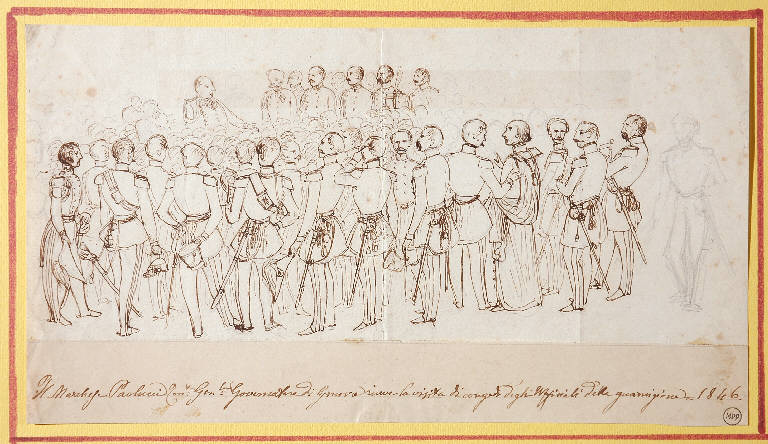 Il Marchese Paulucci Com.te Gen.le Governatore di Genova riceve la visita di congedo degli Uffiziali della guarnigione = 1846.
MPP